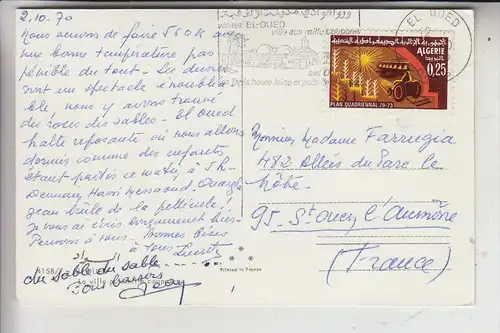 2.10.70
Nous venons de faire 560K avec
une bonne température pas
pénible du tout. Les dunes
sont un spectacle inoubliable
nous y avons trouvé
des roses des sables. El oued
halte reposante où nous allons
dormir comme des enfants
étant partis ce matin à 5h
Demain Hassi Messaoud. Ouargla
Jean brûle de la pellicule!
Je vous ai écrit longuement hier
Pensons à vous. Bonnes bises
à tous Lucette
du sable du sable
Tous baisers
Jean
4158/
Printed in France
visitez EL-OUED
ville aux mille coupoles
EL OUED
ALGERIE
0,25
PLAN QUADRIENNAL 70-73
Monsieur, Madame Farrugia
482 Allées du Parc le
Nôtre.
95. St Ouen l'Aumône
(France)